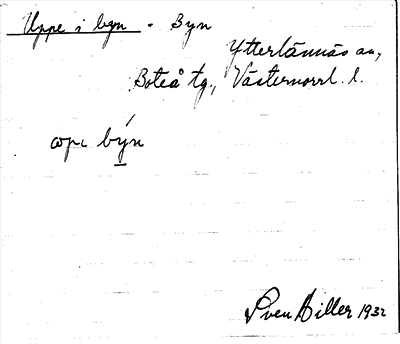 Uppe i byn - Byn
Ytterlännäs sn,
Boteå tg., Västernorrl. l.
opi býn
Sven Hiller 1932